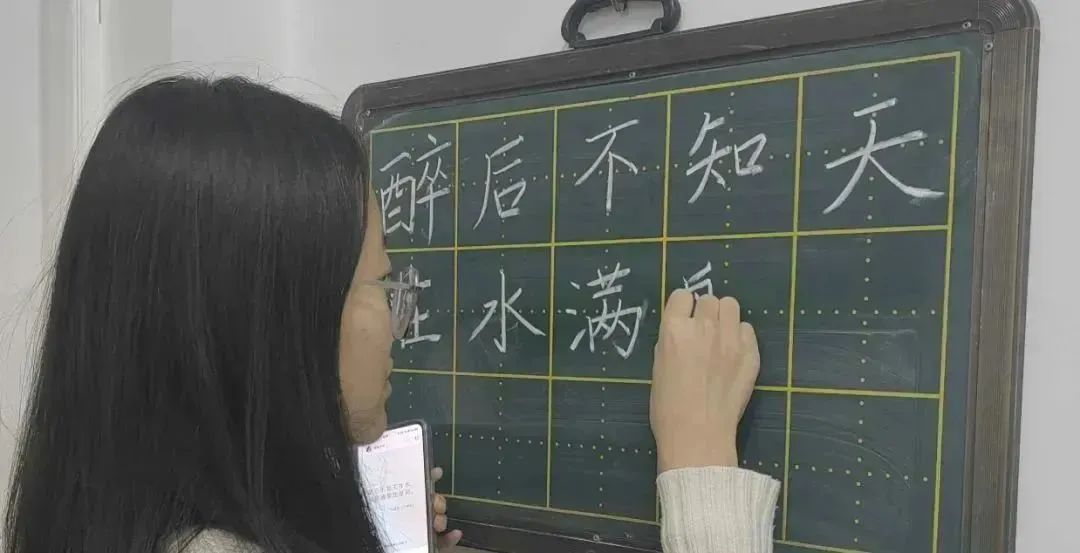 醉后不知天
在水满